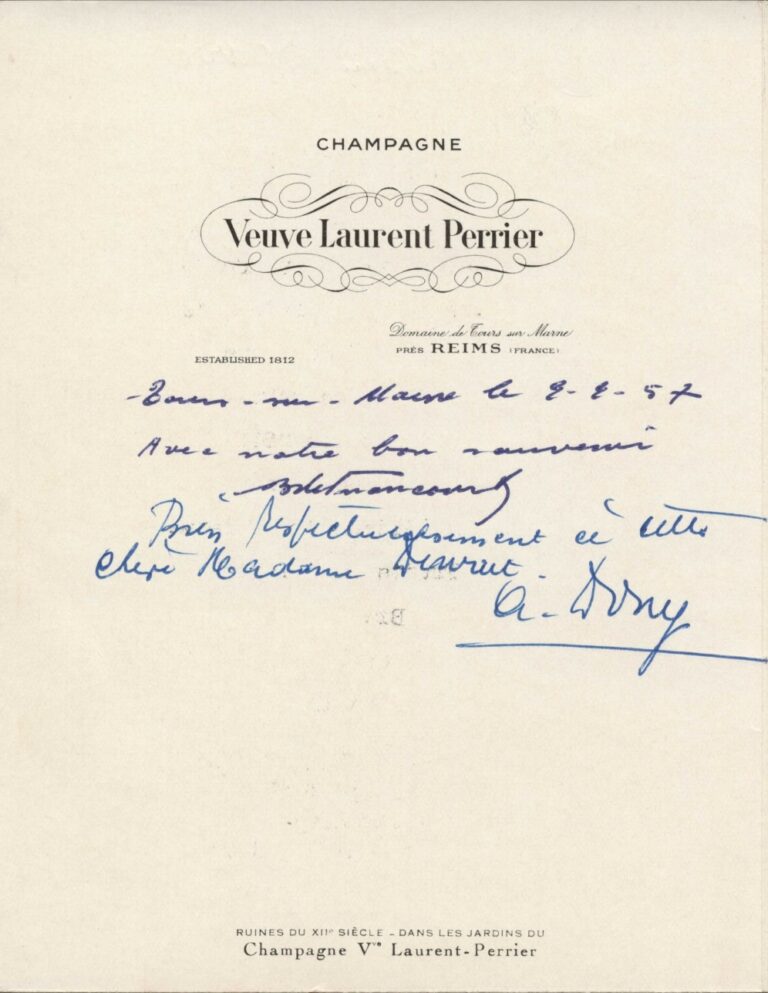 CHAMPAGNE
Veuve Laurent Perrier
Domaine de Tours sur Marne
PRÈS REIMS (FRANCE)
ESTABLISHED 1812
Tours-sur-Marne le 9-9-57
Avec notre bon souvenir
Bien respectueusement à cette
chère Madame
A. Dony
RUINES DU XIIe SIÈCLE - DANS LES JARDINS DU
Champagne Vve Laurent-Perrier